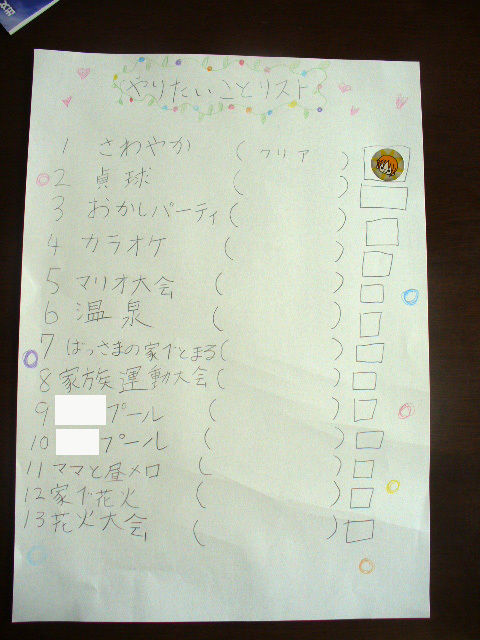 やりたいことリスト
1 さわやか ( クリア )
2 貞球 ( )
3 おかしパーティ ( )
4 カラオケ ( )
5 マリオ大会 ( )
6 温泉 ( )
7 ばっさまの家でとまる ( )
8 家族運動大会 ( )
9 プール ( )
10 プール ( )
11 ママと昼メロ ( )
12 家で花火 ( )
13 花火大会 ( )